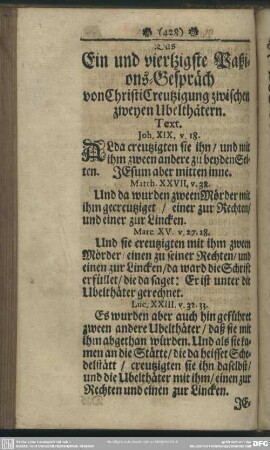 (428)
Das
Ein und viertzigste Paßi-
ons-Gespräch
von Christi Creutzigung zwischen
zweyen Ubelthätern.
Text.
Joh. XIX, v. 18.
ALda creutzigten sie ihn / und mit
ihm zween andere zu beyden Sei-
ten. JEsum aber mitten inne.
Matth. XXVII, v. 38.
Und da wurden zween Mörder mit
ihm gecreutziget / einer zur Rechten /
und einer zur Lincken.
Marc. XV. v. 27. 28.
Und sie creutzigten mit ihm zween
Mörder / einen zu seiner Rechten / und
einen zur Lincken / da ward die Schrift
erfüllet / die da saget: Er ist unter die
Ubelthäter gerechnet.
Luc. XXIII. v. 32. 33.
Es wurden aber auch hin geführet
zween andere Ubelthäter / daß sie mit
ihm abgethan würden. Und als sie ka-
men an die Stätte / die da heisset Sche-
delstätt / creutzigten sie ihn daselbst /
und die Ubelthäter mit ihm / einen zur
Rechten und einen zur Lincken.
JE